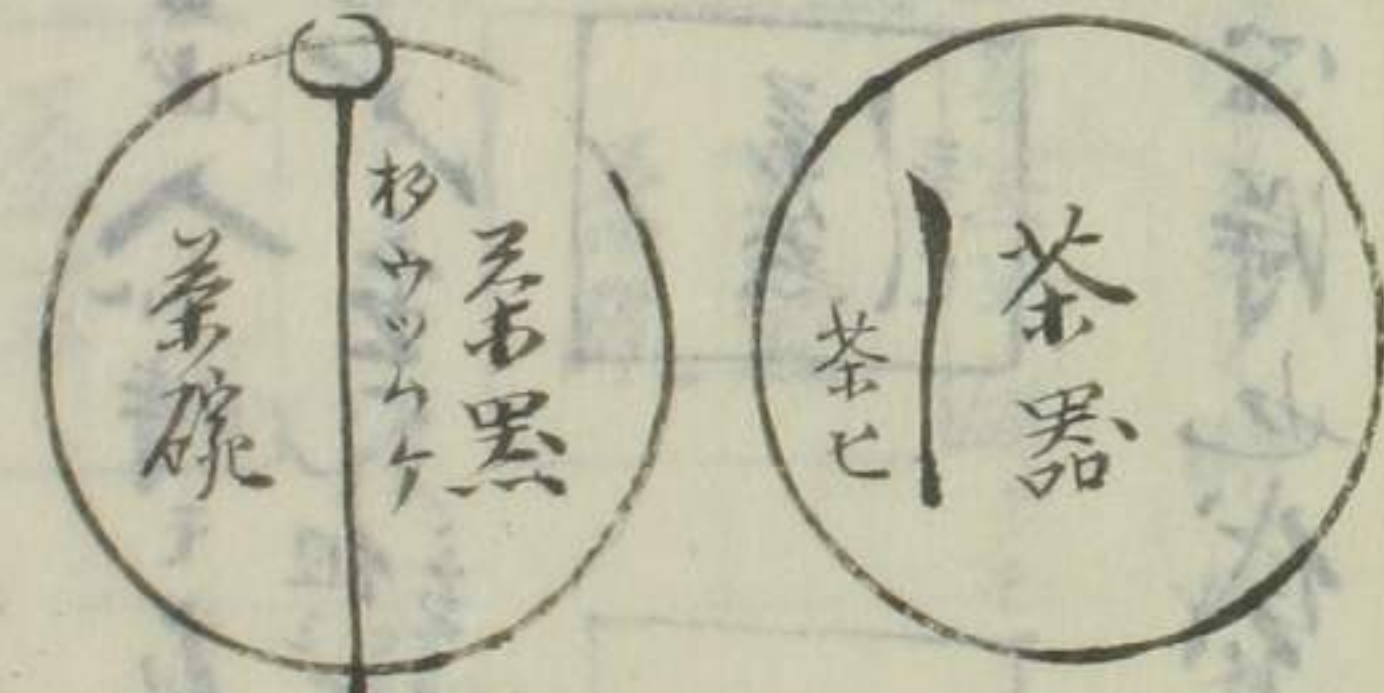 茶器
茶匕
茶器
杓ウツムケ
茶碗